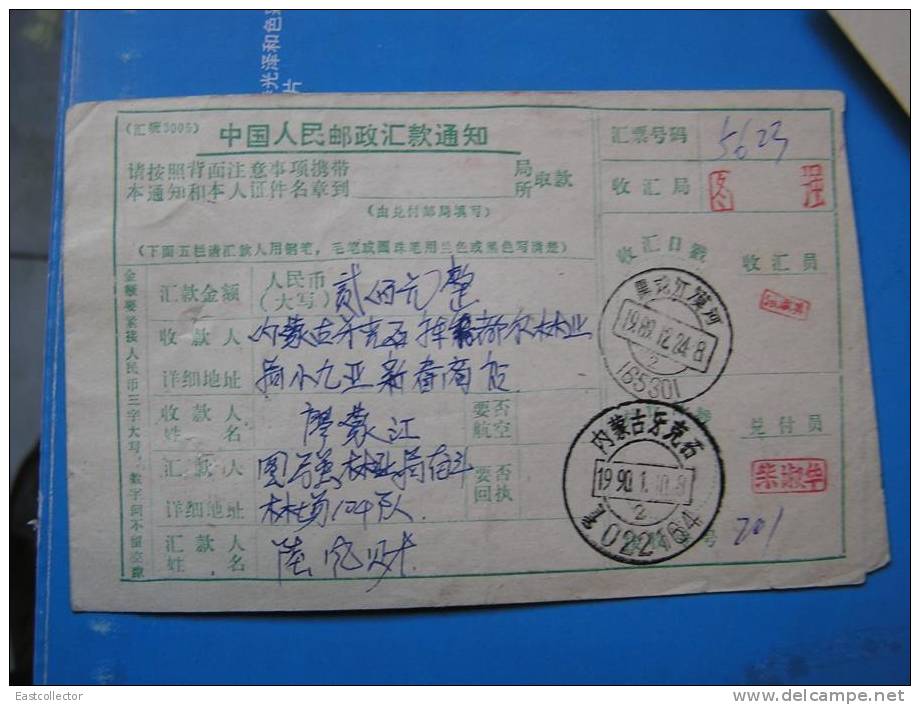 光泽和色
片
(汇 3005)
中国人民邮政汇款通知
请按照背面注意事项携带
本通知和本人证件名章到 局所 取款
(由兑付邮局填写)
(下面五栏请汇款人用钢笔，毛笔或圆珠笔用兰色或黑色写清楚)
汇票号码 5623
收汇局 图 强
收汇日戳 收汇员
黑龙江漠河
1989.12.24.8
2
165301
金额要紧接人民币三字大写，数字间不留空隙
汇款金额 人民币(大写) 贰佰元整
收款人 内蒙古牙克石 都尔林业
详细地址 局 新春商店
收款人姓名 廖蒙江 要否航空
汇款人 图强林业局奋斗 要否回执
详细地址 林场104队
汇款人姓名 陆
内蒙古牙克石
1990.1.10.8
2
022164
兑付员
柴淑华
号 201
Eastcollector
delcampe.net